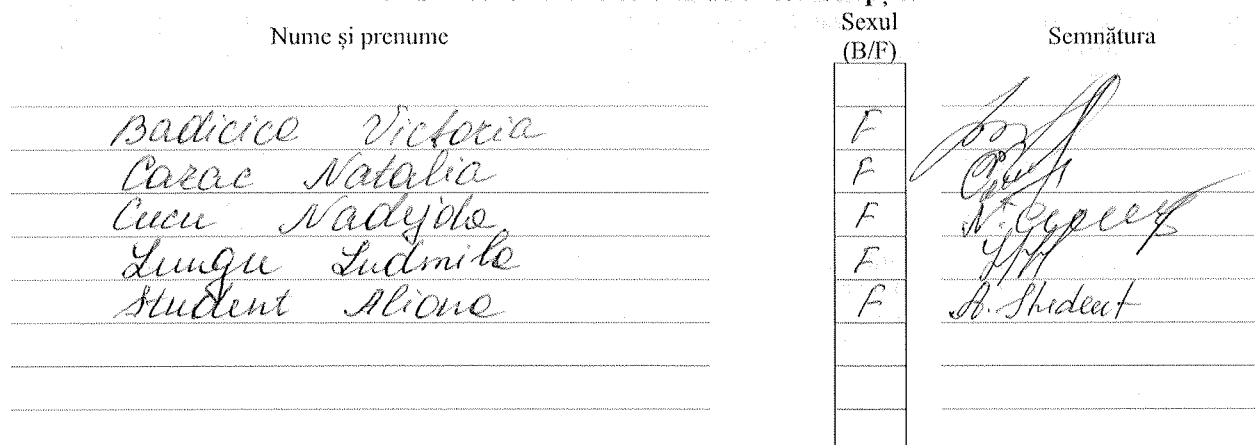 Nume și prenume Sexul (B/F) Semnătura
Badicico Victoria F
Carac Natalia F
Cucu Nadejda F N. Cucu
Lungu Ludmila F
Student Aliona F A. Student